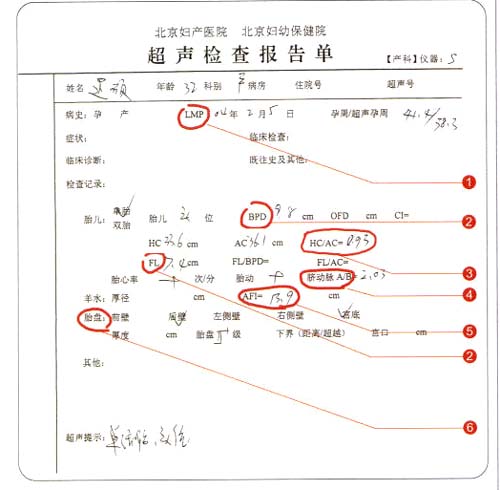 北京妇产医院 北京妇幼保健院
超声检查报告单
【产科】仪器: 5
姓名 年龄 32 科别 产 病房 住院号 超声号
病史: 孕 产 LMP 04 年 2 月 5 日 孕周/超声孕周 41.4/38.3
症状: 临床检查:
临床诊断: 既往史及其他:
检查记录: 1
胎儿: 单胎 胎儿 位 BPD 9.8 cm OFD cm CI= 2
双胎
HC 33.6 cm AC 36.1 cm HC/AC= 0.93
FL 7.4 cm FL/BPD= FL/AC= 3
胎心率 + 次/分 胎动 + 脐动脉 A/B= 2.03
羊水: 厚径 cm AFI= 13.9 cm 4
胎盘: 前壁 后壁 左侧壁 右侧壁 宫底 5
厚度 cm 胎盘 II+ 级 下界 (距离/超越) 宫口 cm 2
其他:
6
超声提示: